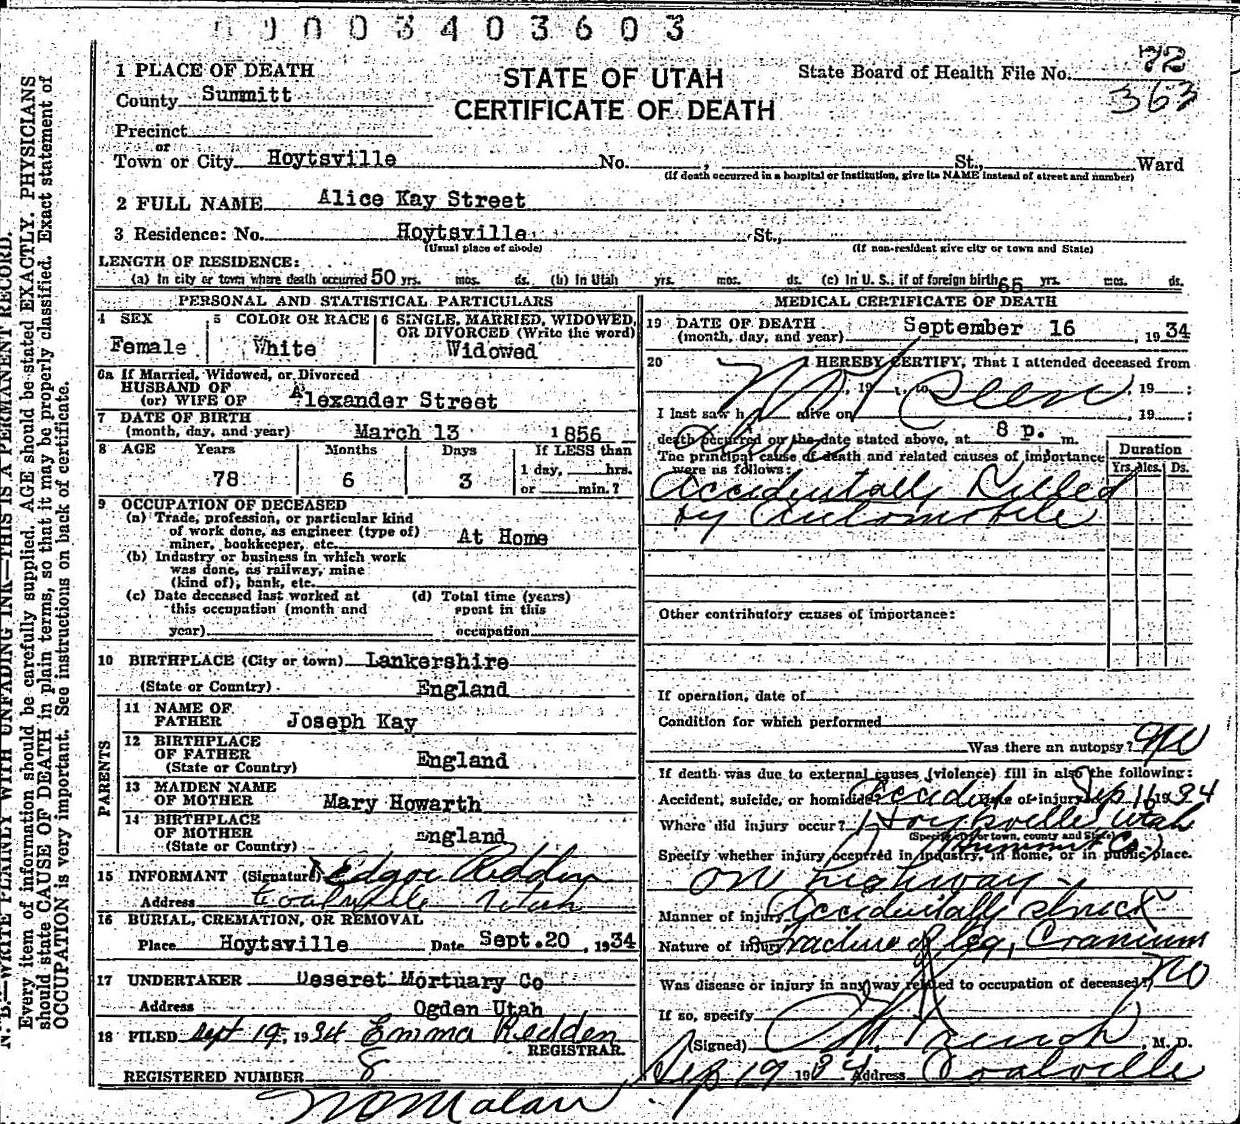 0003403603
1 PLACE OF DEATH
STATE OF UTAH
CERTIFICATE OF DEATH
State Board of Health File No. 72
363
County Summitt
Precinct
or
Town or City Hoytsville No. , St., Ward
(If death occurred in a hospital or institution, give its NAME instead of street and number)
2 FULL NAME Alice Kay Street
3 Residence: No. Hoytsville St.,
(Usual place of abode) (If non-resident give city or town and State)
LENGTH OF RESIDENCE:
(a) In city or town where death occurred 50 yrs. mos. ds. (b) In Utah yrs. mos. ds. (c) In U. S., if of foreign birth 66 yrs. mos. ds.
PERSONAL AND STATISTICAL PARTICULARS
4 SEX 5 COLOR OR RACE 6 SINGLE, MARRIED, WIDOWED, OR DIVORCED (Write the word)
Female White Widowed
6a If Married, Widowed, or Divorced
HUSBAND OF
(or) WIFE OF Alexander Street
7 DATE OF BIRTH
(month, day, and year) March 13 1856
8 AGE Years Months Days If LESS than
78 6 3 1 day, hrs.
or min.?
9 OCCUPATION OF DECEASED
(a) Trade, profession, or particular kind
of work done, as engineer (type of)
miner, bookkeeper, etc. At Home
(b) Industry or business in which work
was done, as railway, mine
(kind of), bank, etc.
(c) Date deceased last worked at (d) Total time (years)
this occupation (month and spent in this
year) occupation
10 BIRTHPLACE (City or town) Lankershire
(State or Country) England
PARENTS
11 NAME OF
FATHER Joseph Kay
12 BIRTHPLACE
OF FATHER England
(State or Country)
13 MAIDEN NAME
OF MOTHER Mary Howarth
14 BIRTHPLACE
OF MOTHER England
(State or Country)
15 INFORMANT (Signature) Edgar Redden
Address Coalville Utah
16 BURIAL, CREMATION, OR REMOVAL
Place Hoytsville Date Sept.20 , 1934
17 UNDERTAKER Deseret Mortuary Co
Address Ogden Utah
18 FILED Sept 19, 1934 Emma Redden
REGISTRAR.
REGISTERED NUMBER 8
MEDICAL CERTIFICATE OF DEATH
19 DATE OF DEATH
(month, day, and year) September 16 , 1934
20 I HEREBY CERTIFY, That I attended deceased from
, 19 , to , 19 :
I last saw h alive on , 19 :
death occurred on the date stated above, at 8 p. m.
The principal cause of death and related causes of importance
were as follows: Duration
Yrs. Mos. Ds.
Accidentally Killed
by Automobile
Other contributory causes of importance:
If operation, date of
Condition for which performed
Was there an autopsy? No
If death was due to external causes (violence) fill in also the following:
Accident, suicide, or homicide? Accident Date of injury Sep 16 1934
Where did injury occur? Hoytsville Utah
(Specify city or town, county and State)
Summit Co.
Specify whether injury occurred in industry, in home, or in public place.
on highway
Manner of injury Accidentally struck
Nature of injury Fracture of leg, Cranium
Was disease or injury in any way related to occupation of deceased? No
If so, specify
(Signed) , M. D.
Sep 19 1934 Address Coalville
N. B.—WRITE PLAINLY WITH UNFADING INK—THIS IS A PERMANENT RECORD.
Every item of information should be carefully supplied. AGE should be stated EXACTLY. PHYSICIANS
should state CAUSE OF DEATH in plain terms, so that it may be properly classified. Exact statement of
OCCUPATION is very important. See instructions on back of certificate.